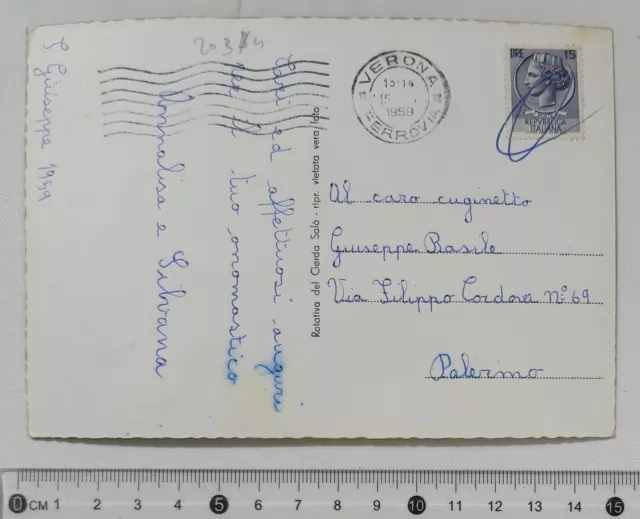 S. Giuseppe 1959
Cari ed affettuosi auguri
per il tuo onomastico
Annalisa e Silvana
Rotativa del Garda Salò - ripr. vietata vera foto
VERONA
13-14
1959
FERROVIA
LIRE 15
REPVBBLICA
ITALIANA
Al caro cuginetto
Giuseppe Basile
Via Filippo Cordova N.o 69
Palermo
0 CM 1 2 3 4 5 6 7 8 9 10 11 12 13 14 15